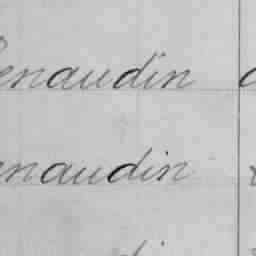 Renaudin
enaudin